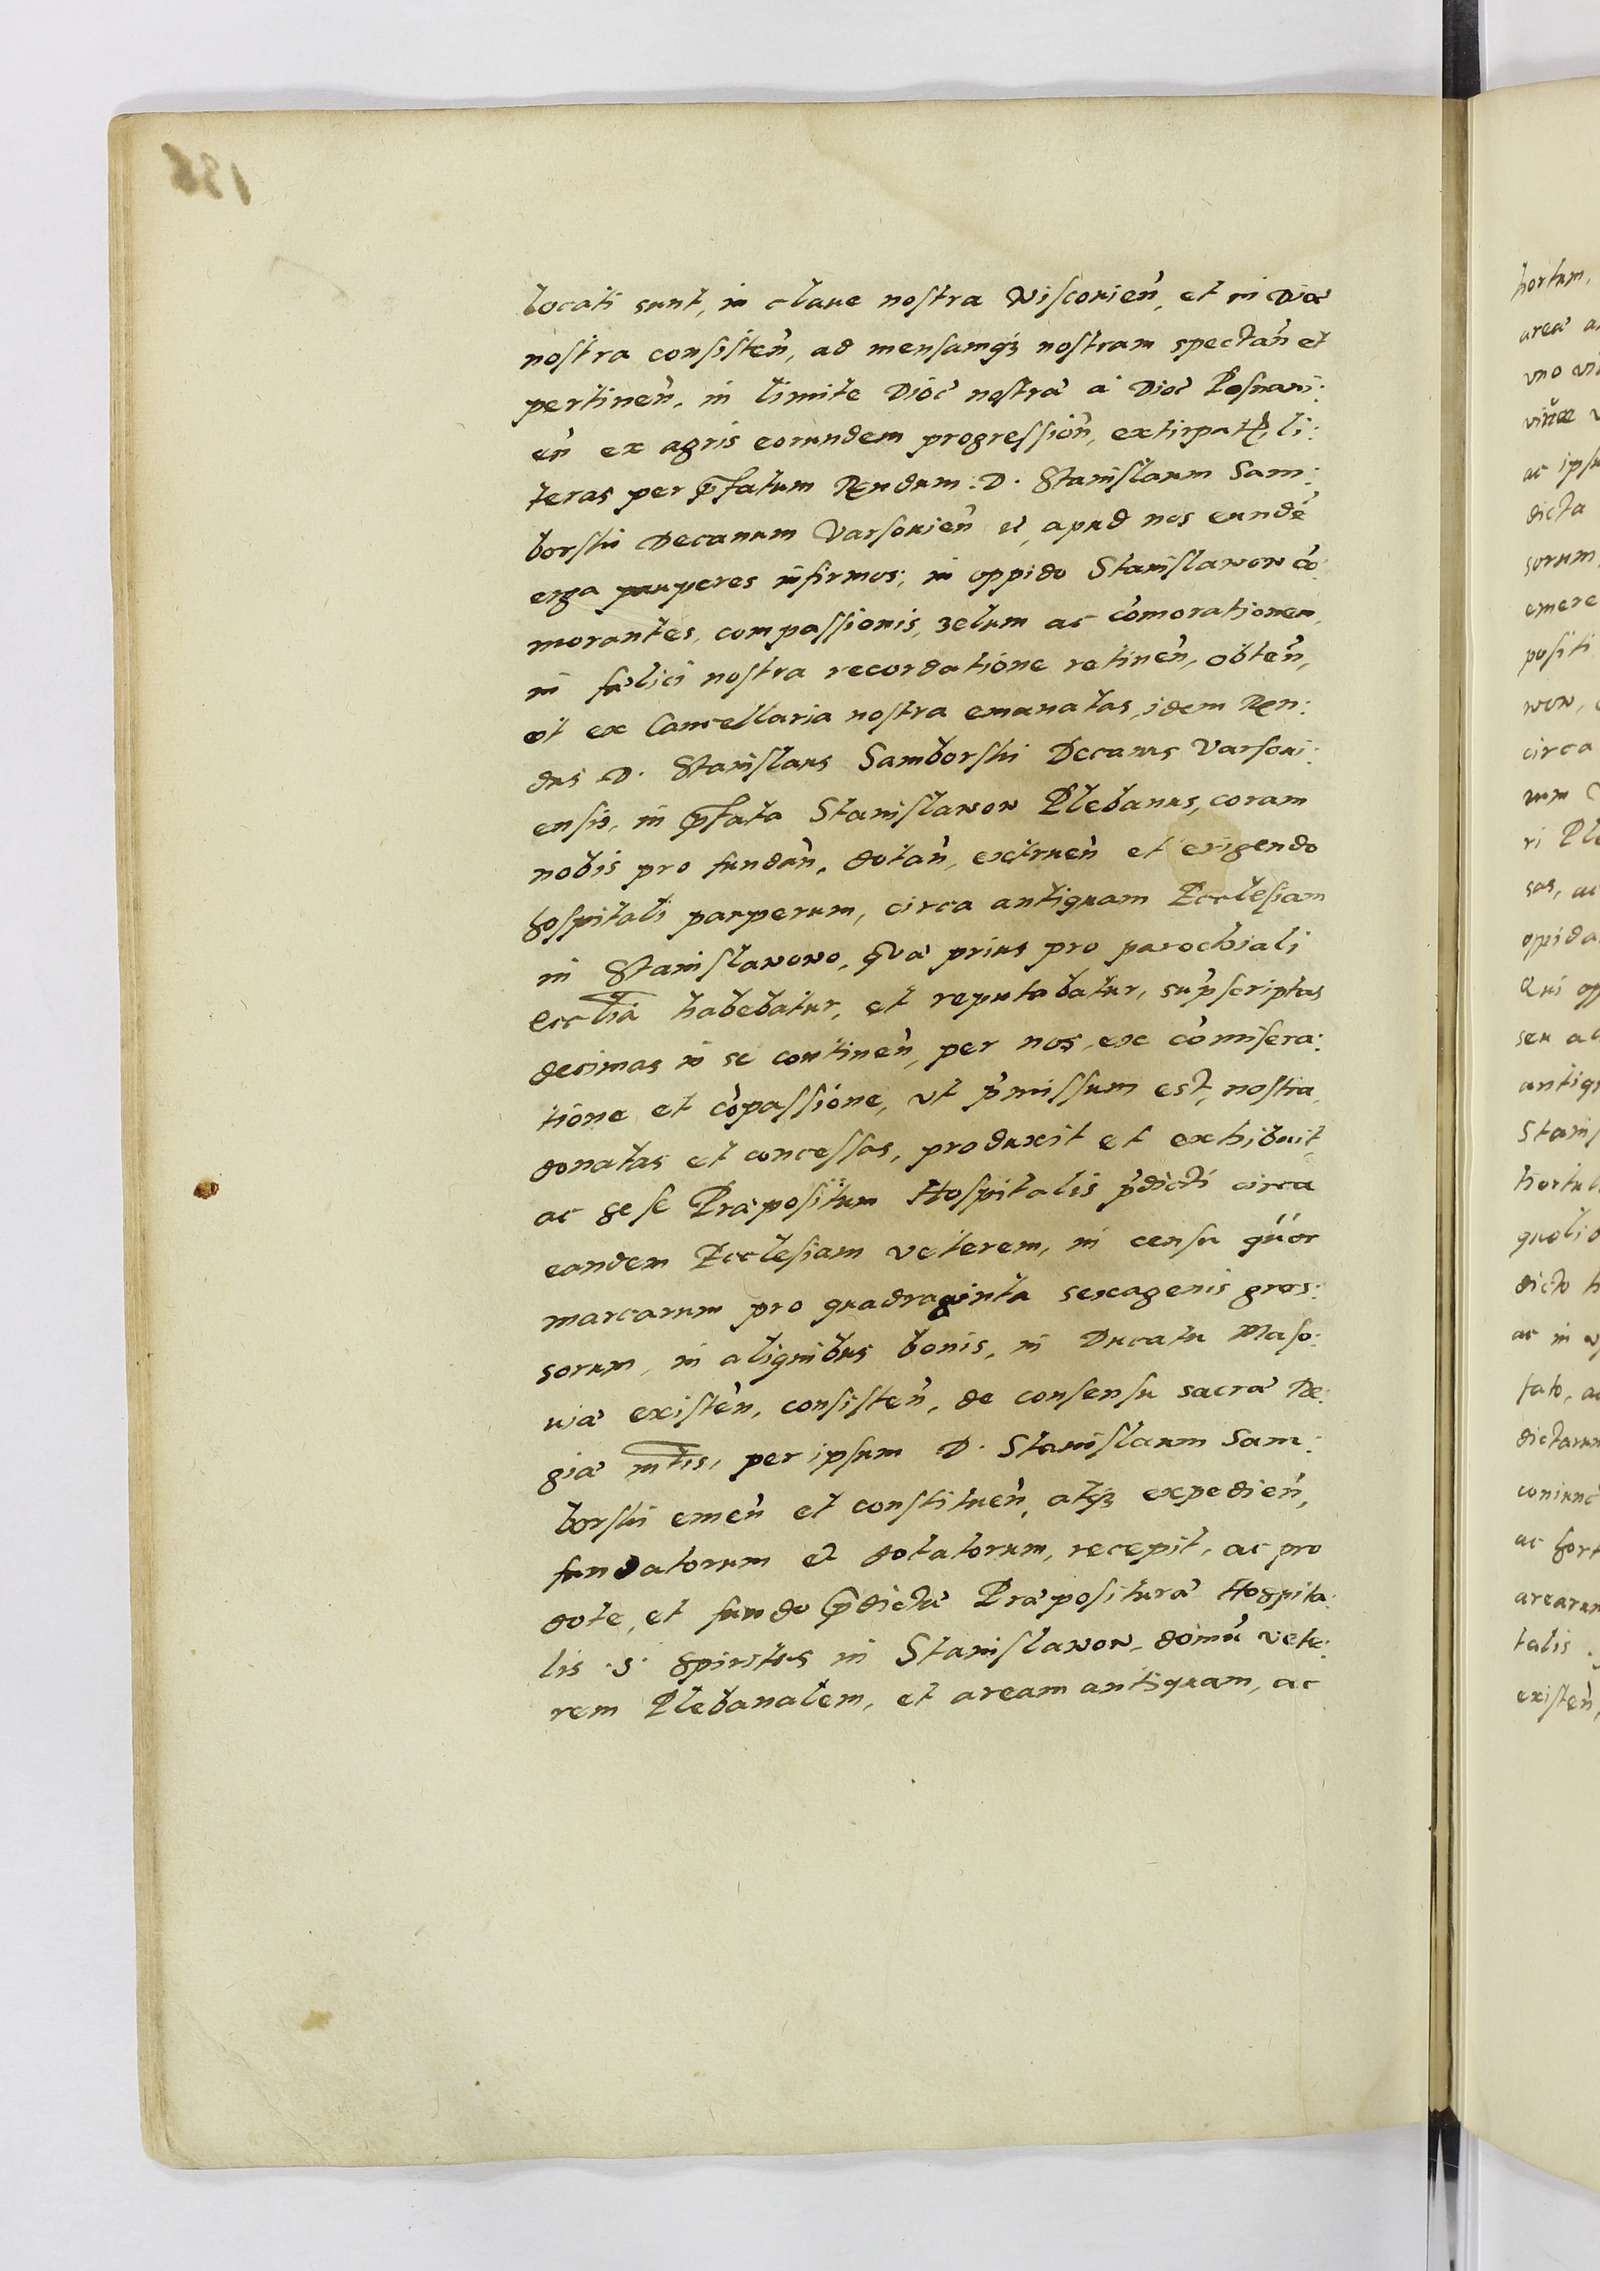 locati sunt, in claue nostra Wiscouień, et in Diœ
nostra consisteń, ad mensamq₃ nostram spectań et
pertineń, in limite Dióc nostrá á Dióc Posnani:
eń ex agris eorundem progressioń, extirpat, li:
teras per p̄fatum Rndum. D. Stanislaum Sam:
borski Decanum Varsouień et, apud nos eundé
erga pauperes infirmos, in oppido Stanislawow có:
morantes, compassionis, zelum ac cómorationem,
in fælici nostra recordatione retineń, obteń,
et ex Cancellaria nostra emanatas, idem Rn:
dus D. Stanislaus Samborski Decanus Varsoui:
ensis, in p̄fata Stanislawow Plebanus, coram
nobis pro fundań, dotań, extrueń et erigendo
hospitali pauperum, circa antiquam Ecclesiam
in Stanislawowo, quá prius pro parochiali
Ecclia habebatur, et reputabatur, supscriptas
decimas in se contineń, per nos, ex cómisera:
tione et cópassione, vt p̄missum est, nostra,
donatas et concessas, produxit et exhibuit,
ac sese Præpositum Hospitalis p̄dicti circa
eandem Ecclesiam veterem, in censu quor
marcarum pro quadraginta sexagenis gros:
sorum, in aliquibus bonis, in Ducatu Maso:
uiá existeń, consisteń, de consensu sacrá Re:
giá mtis, per ipsum D. Stanislaum Sam:
borski emeń et constitueń, atq₃ expedień,
fundatorum et dotatorum, recepit, ac pro
dote, et fundo p̄dictá Præpositurá Hospita:
lis .S. Spiritus in Stanislawow, domú vete:
rem Plebanalem, et aream antiquam, ac
hortum,
area
vno
ac
dicta
sorum,
emere
positi
wow,
circa
ri
sas, ac
Qui
seu
antiq
Stanis
hortul
dicto h
ac in
fato, a
dictarum
coniunc
ac hort
arearum
talis.
existeń,